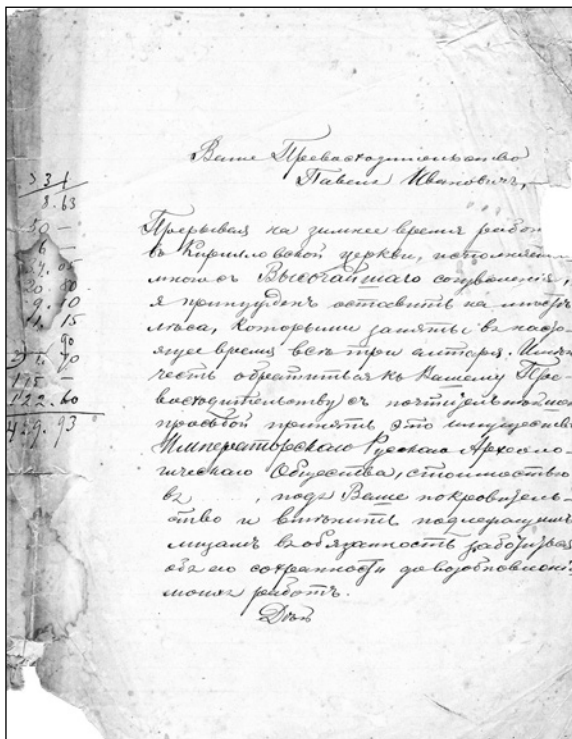 Ваше Превосходительство
Павелъ Ивановичъ,
Прерывая на зимнее время работ
въ Кирилловской церкви, исполняем
мною съ Высочайшаго соизволенія,
я принужденъ оставить на мѣстѣ
лѣса, которыми заняты въ насто-
ящее время всѣ три алтаря. Имѣя
честь обратиться къ Вашему Пре-
восходительству съ почтительнѣйшей
просьбой принять это имущество
Императорскаго Русскаго Археоло-
гическаго Общества, стоимостью
въ , подъ Ваше покровитель-
ство и вмѣнить подлежащимъ
лицамъ въ обязанность заботиться
объ его сохранности до возобновленія
моихъ работъ.
331
8.63
50 —
6 —
20 80
9.10
4. 15
90
175 —
122.60
459.93